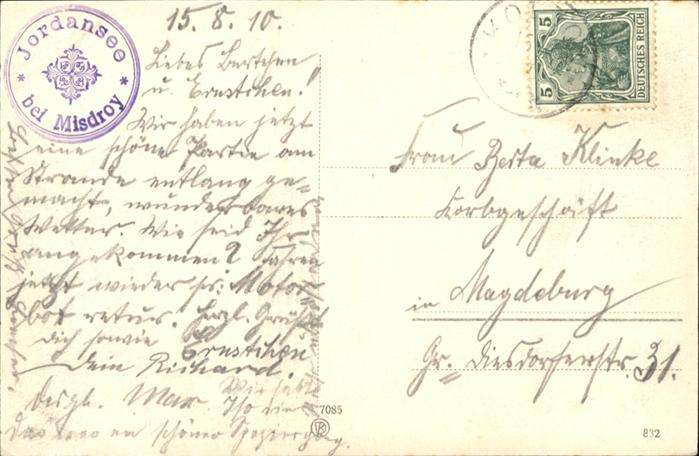 Jordansee
bei Misdroy
15.8.10.
Liebes Bertchen
u. Ernstchen!
Wir haben jetzt
eine schöne Partie am
Strande entlang ge=
macht, wunderbares
Wetter. Wie seid Ihr
angekommen? Fahren
jetzt wieder pr. Motor
bot retur. Herzl. Grüße
dich sowie
Ernstchen
Dein Richard.
desgl. Max
schöner Spaziergang
5 5
DEUTSCHES REICH
Frau Berta Klinke
Korbgeschäft
in Magdeburg
Gr. Diesdorferstr. 31.
7085
832